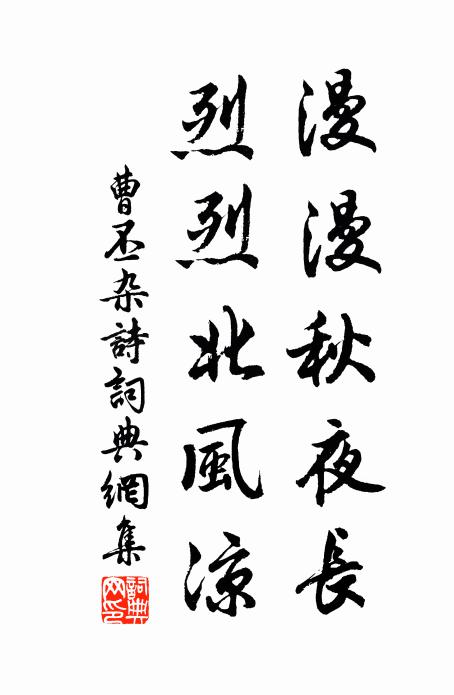 漫漫秋夜長
烈烈北風涼
曹丕杂詩詞典網集
詞典网印